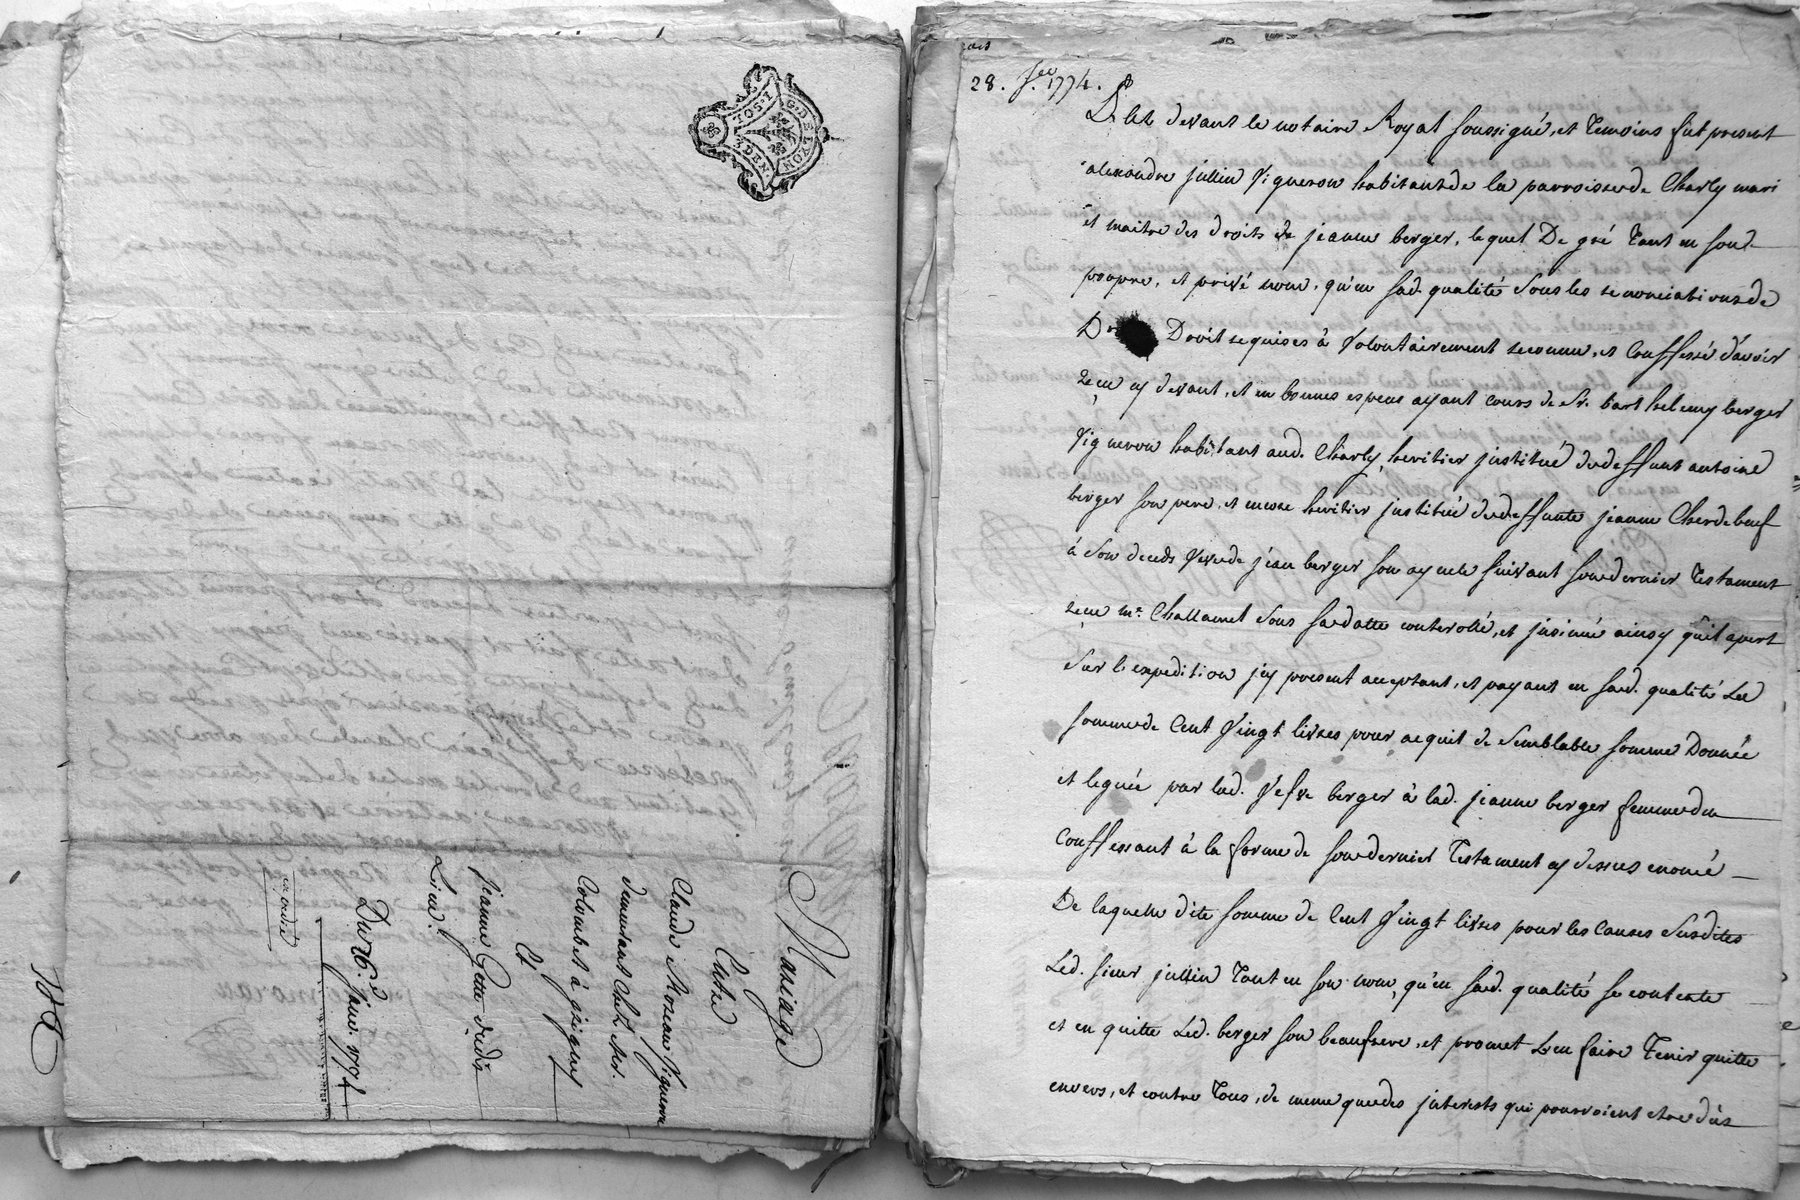 G. DE LYON
10 S. I
DEN.
Mariage
Entre
Claude Moreau Vigneron
demeurant
Colombet à grigny
Et
jeanne Gotte dudt
Lieu
Du 26e janv. 1774
28. 1774.
devant le notaire Royal soussigné, et temoins fut present
alexandre jullin Vigneron habitant de la parroisse de Charly mari
et maitre des droits de jeanne berger, lequel De gré tant en son
propre, et privé nom, qu'en sad. qualité sous les renonciations de
Droit requises à volontairement reconnu, et Confessé d'avoir
reçu cy devant, et en bonnes especes ayant cours de Sr. barthelemy berger
Vigneron habitant aud. Charly, heritier jnstitué du deffunt antoine
berger son pere, et encore heritier jnstitué de deffunte jeanne Cherdebeuf
à son deceds Veuve de jean berger son ayeule suivant son dernier Testament
reçu me. Challamel sous sa datte controllé, et jnsinué ainsy qu'il apert
sur l'expedition jcy present acceptant, et payant en sad. qualité La
somme de Cent Vingt livres pour acquit de semblable somme Donnée
et leguée par lad. Vefve berger à lad. jeanne berger femme du
Confessant à la forme de son dernier Testament cy dessus enoncé
De laquelle dite somme de Cent Vingt livres pour les Causes susdites
Led. sieur jullin tant en son nom, qu'en sad. qualité se contente
et en quitte Led. berger son beaufrere, et promet L'en faire Tenir quitte
envers, et contre Tous, de meme que des jnterests qui pourroient etre dûs